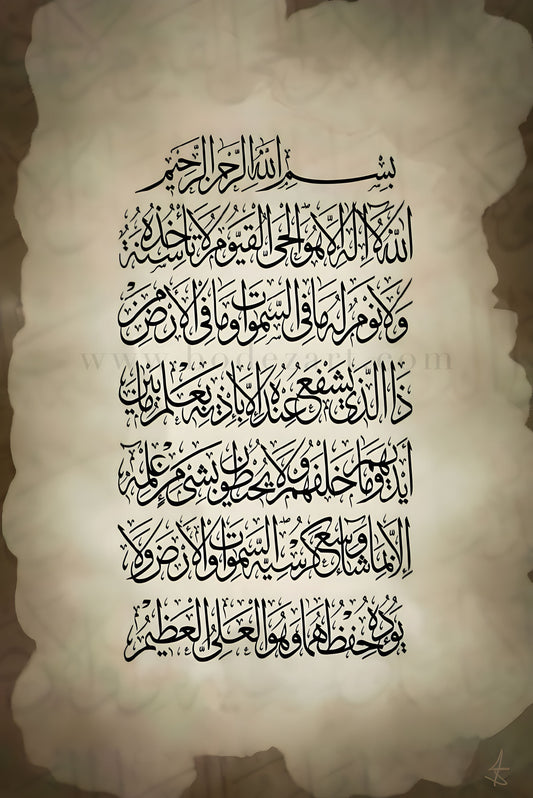 بِسْمِ اللَّهِ الرَّحْمَنِ الرَّحِيمِ
اللَّهُ لَا إِلَهَ إِلَّا هُوَ الْحَيُّ الْقَيُّومُ لَا تَأْخُذُهُ سِنَةٌ
وَلَا نَوْمٌ لَهُ مَا فِي السَّمَوَاتِ وَمَا فِي الْأَرْضِ مَنْ
ذَا الَّذِي يَشْفَعُ عِنْدَهُ إِلَّا بِإِذْنِهِ يَعْلَمُ مَا بَيْنَ
أَيْدِيهِمْ وَمَا خَلْفَهُمْ وَلَا يُحِيطُونَ بِشَيْءٍ مِنْ عِلْمِهِ
إِلَّا بِمَا شَاءَ وَسِعَ كُرْسِيُّهُ السَّمَوَاتِ وَالْأَرْضَ وَلَا
يَئُودُهُ حِفْظُهُمَا وَهُوَ الْعَلِيُّ الْعَظِيمُ
www.bodezart.com